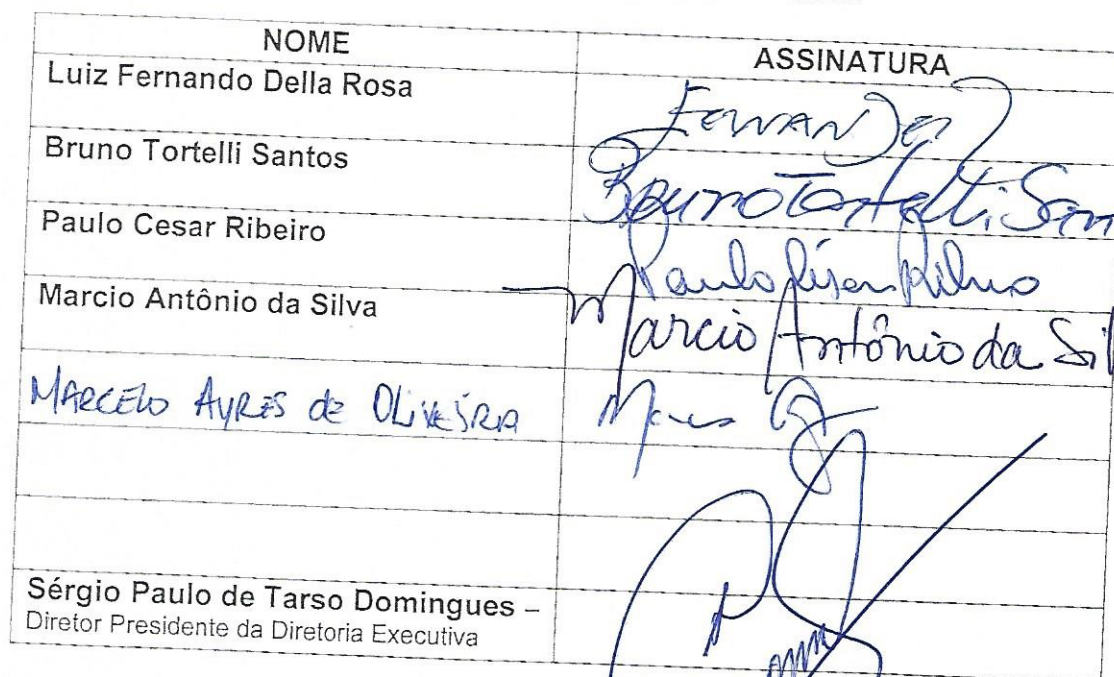 NOME ASSINATURA
Luiz Fernando Della Rosa
Bruno Tortelli Santos Bruno Tortelli San
Paulo Cesar Ribeiro Paulo César Ribeiro
Marcio Antônio da Silva Marcio Antônio da Sil
MARCELO AYRES de OLIVEIRA
Sérgio Paulo de Tarso Domingues –
Diretor Presidente da Diretoria Executiva